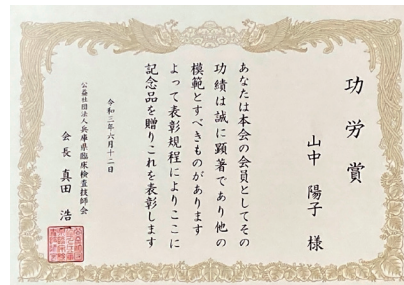 功労賞
山中 陽子 様
あなたは本会の会員としてその
功績は誠に顕著であり他の
模範とすべきものがあります
よって表彰規程によりここに
記念品を贈りこれを表彰します
令和三年六月十二日
公益社団法人兵庫県臨床検査技師会
会長 真田 浩一